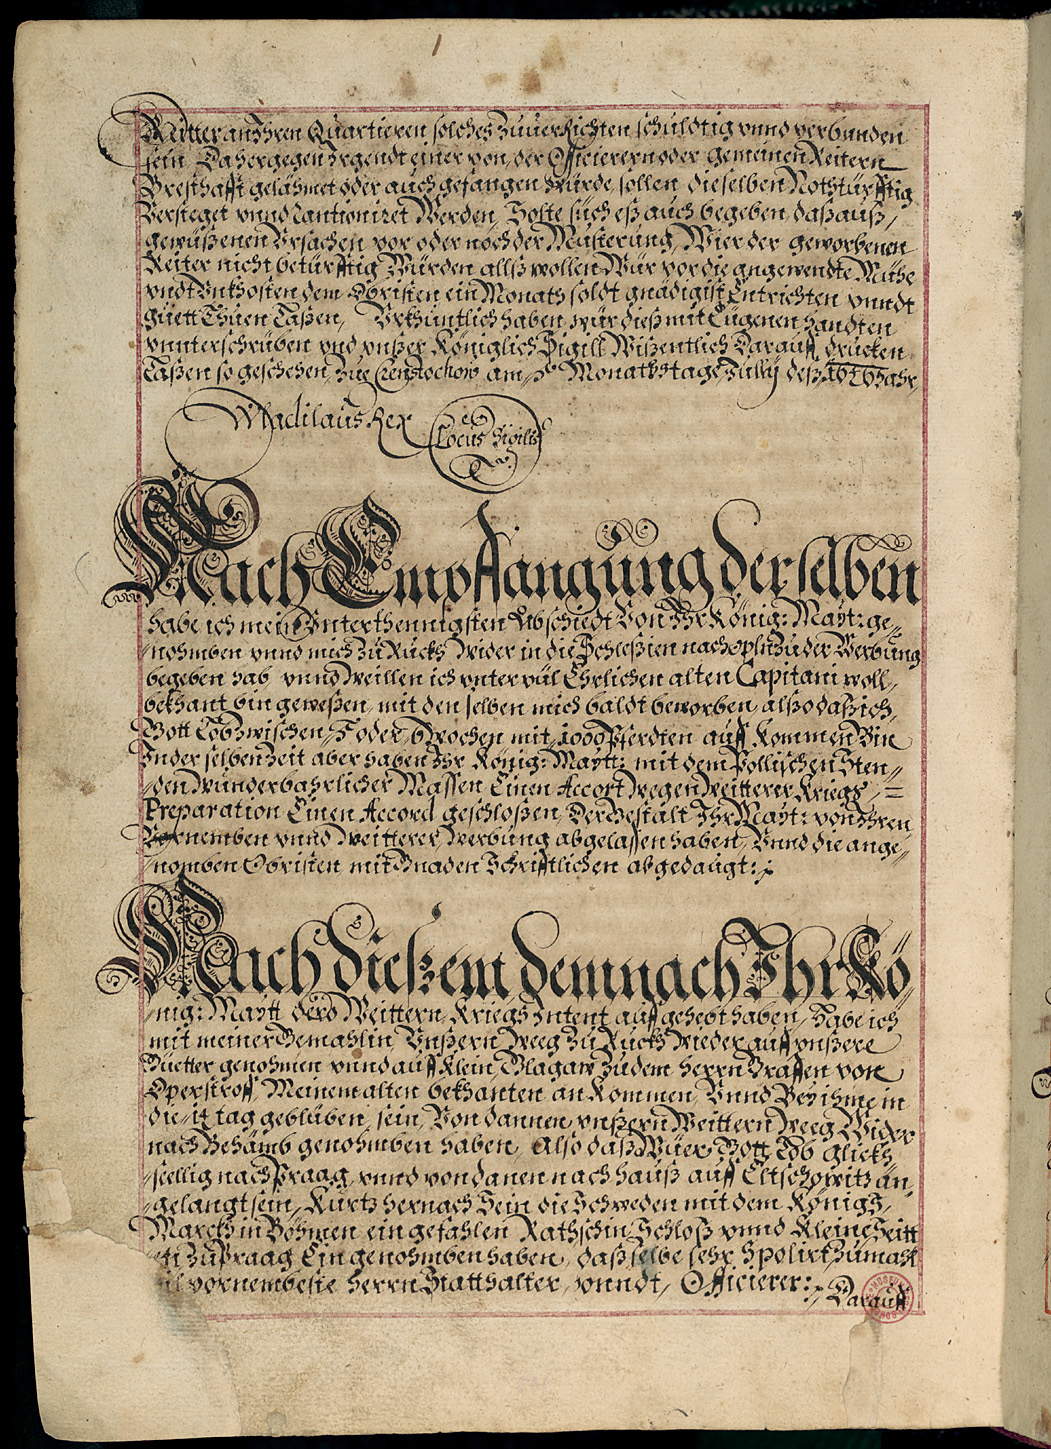 Ritter an Ihren Quartieren solches zuuerrichten schuldtig vnnd verbunden
sein Da hergegen Irgendt einer von der Officierern oder gemeinen Reitern
Presthafft gelähmet oder auch gefangen würde, sollen dieselben Nothtürfftig
Verpfleget vnnd Rantioniret Werden, Solte sich eß auch begeben, daß auß
gewüßenen Vrsachen, vor oder noch der Musterung, Wier der geworbenen
Reiter nicht betürfftig Würden, allß wollen Wür vor die angewendte Mühe
vndt Vnkhosten dem Obristen ein Monath soldt gnädigist Entrichten vnndt
guett Thuen Laßen, Vrkhundtlich haben wür dieß mit Eügenen handten
vnnterschrüben vnd vnßer Königlich Sigill Wißentlich Darauff drücken
Laßen, so geschehen, zue Czenstochow am Monaths tage July deß 1646 Jahr,
Wladilaus Rex Locus Sigilli
Nach Empffangung derselben
habe ich mein Vnterthennigsten Abschiedt Von Ihr König: Mayt: ge-
nohmben vnnd mich zu Ruckh Wider in die Schleßien nach opln zu der Werbung
begeben hab vnnd Weillen ich vnter väl Ehrlichen alten Capitani woll
bekhant bin geweßen, mit den selben mich baldt beworben, alßo daß ich,
Gott Lob zwischen 5 oder 6 Wochen mit 1000 Pferdten auff Kommen Bin
In der selben Zeit aber haben Ihr König: Maytt: mit dem Pollischen Sten-
den Wunderbahrlicher Massen Einen Accort Wegen Weitterer Kriegs =
Preparation Einen Accord geschloßen, Der Gestalt Ihr Mayt: von Ihren
Vornemben vnnd Weitterer Werbung abgelassen haben, Vnnd die ange-
nomben Obristen mit Gnaden Schrifftlichen abgedangt:
Nach dießem demnach Ihr Kö-
nig: Maytt dero Weittern Kriegs Intent auff gehebt haben, Habe ich
mit meiner Gemahlin Vnßern Weeg Zu Ruckh Wieder auff vnßere
Güetter genohmen vnnd auff Klein Glagaw Zu dem Herrn Graffen von
Operstroff, Meinem alten bekhanten an Kommen, Vnnd Bey ihme in
die 14 tag geblüben sein, Von dannen vnßern Weittern Weeg Wider
nach Behämb genohmben haben, Also daß Wüer Gott Lob glickh-
seellig nach Praag, vnnd von danen nach hauß auff Eltschowitz an-
gelangt sein, Kurtz hernach Sein die Schweden mit dem Königs-
Marckh in Böhmen ein gefahlen Rathschin Schloß vnnd Kleine Seitt
zu Praag Ein genohmben haben, daß selbe sehr Spolirt Zumahl
vornembste Herrn Statthalter, vnndt, Officierer:
Darauff